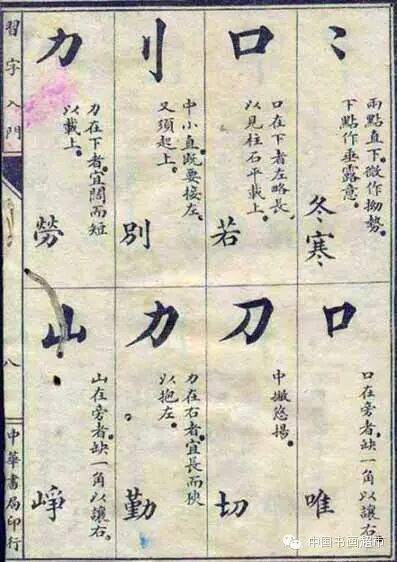 ⺀
兩點直下。微作拗勢。
下點作垂露意。
冬寒
口
口在下者左略長
以見柱石平載上。
若
刂
中小直既要接左。
又須起上。
別
力
力在下者。宜闊而短
以載上。
勞
口
口在旁者。缺一角以讓右。
唯
刀
中撇悠揚。
切
力
力在右者。宜長而狹
以抱左。
勤
山
山在旁者缺一角以讓右。
崢
習字入門
八
中華書局印行
中国书画超市